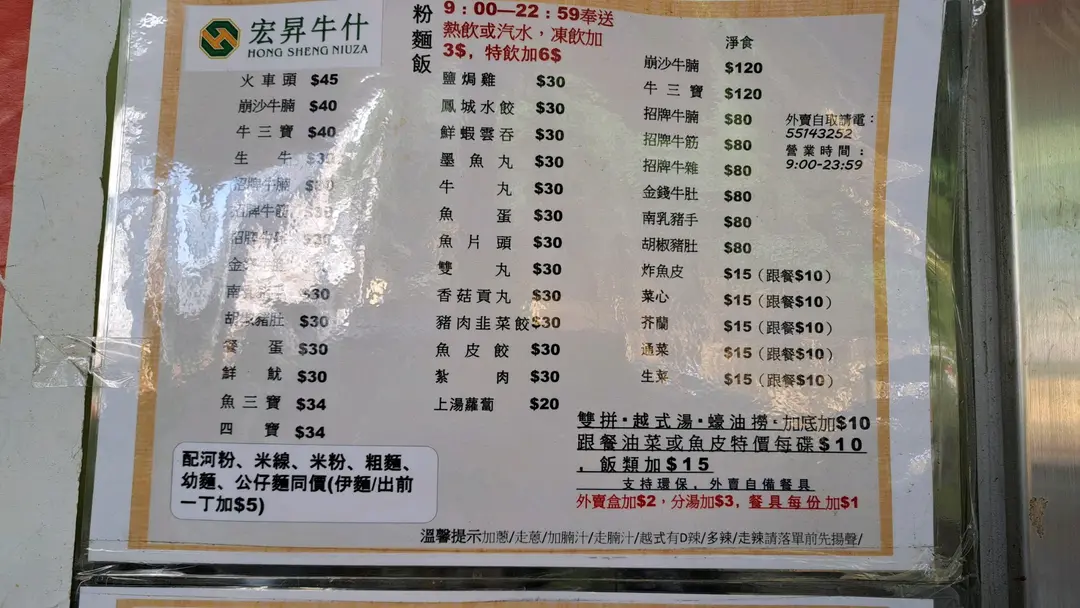 宏昇牛什
HONG SHENG NIUZA
粉麵飯
9:00—22:59奉送
熱飲或汽水，凍飲加
3$，特飲加6$
火車頭 $45
崩沙牛腩 $40
牛三寶 $40
生牛 $30
招牌牛腩 $30
招牌牛筋 $30
招牌牛雜 $30
南乳豬手 $30
胡椒豬肚 $30
餐蛋 $30
鮮魷 $30
魚三寶 $34
四寶 $34
鹽焗雞 $30
鳳城水餃 $30
鮮蝦雲吞 $30
墨魚丸 $30
牛丸 $30
魚蛋 $30
魚片頭 $30
雙丸 $30
香菇貢丸 $30
豬肉韭菜餃 $30
魚皮餃 $30
紮肉 $30
上湯蘿蔔 $20
淨食
崩沙牛腩 $120
牛三寶 $120
招牌牛腩 $80
招牌牛筋 $80
招牌牛雜 $80
金錢牛肚 $80
南乳豬手 $80
胡椒豬肚 $80
炸魚皮 $15（跟餐$10）
菜心 $15（跟餐$10）
芥蘭 $15（跟餐$10）
通菜 $15（跟餐$10）
生菜 $15（跟餐$10）
外賣自取請電：
55143252
營業時間：
9:00-23:59
配河粉、米線、米粉、粗麵、
幼麵、公仔麵同價(伊麵/出前
一丁加$5)
雙拼·越式湯·蠔油撈·加底加$10
跟餐油菜或魚皮特價每碟$10
，飯類加$15
支持環保，外賣自備餐具
外賣盒加$2，分湯加$3，餐具每份加$1
溫馨提示加蔥/走蔥/加腩汁/走腩汁/越式有D辣/多辣/走辣請落單前先揚聲/